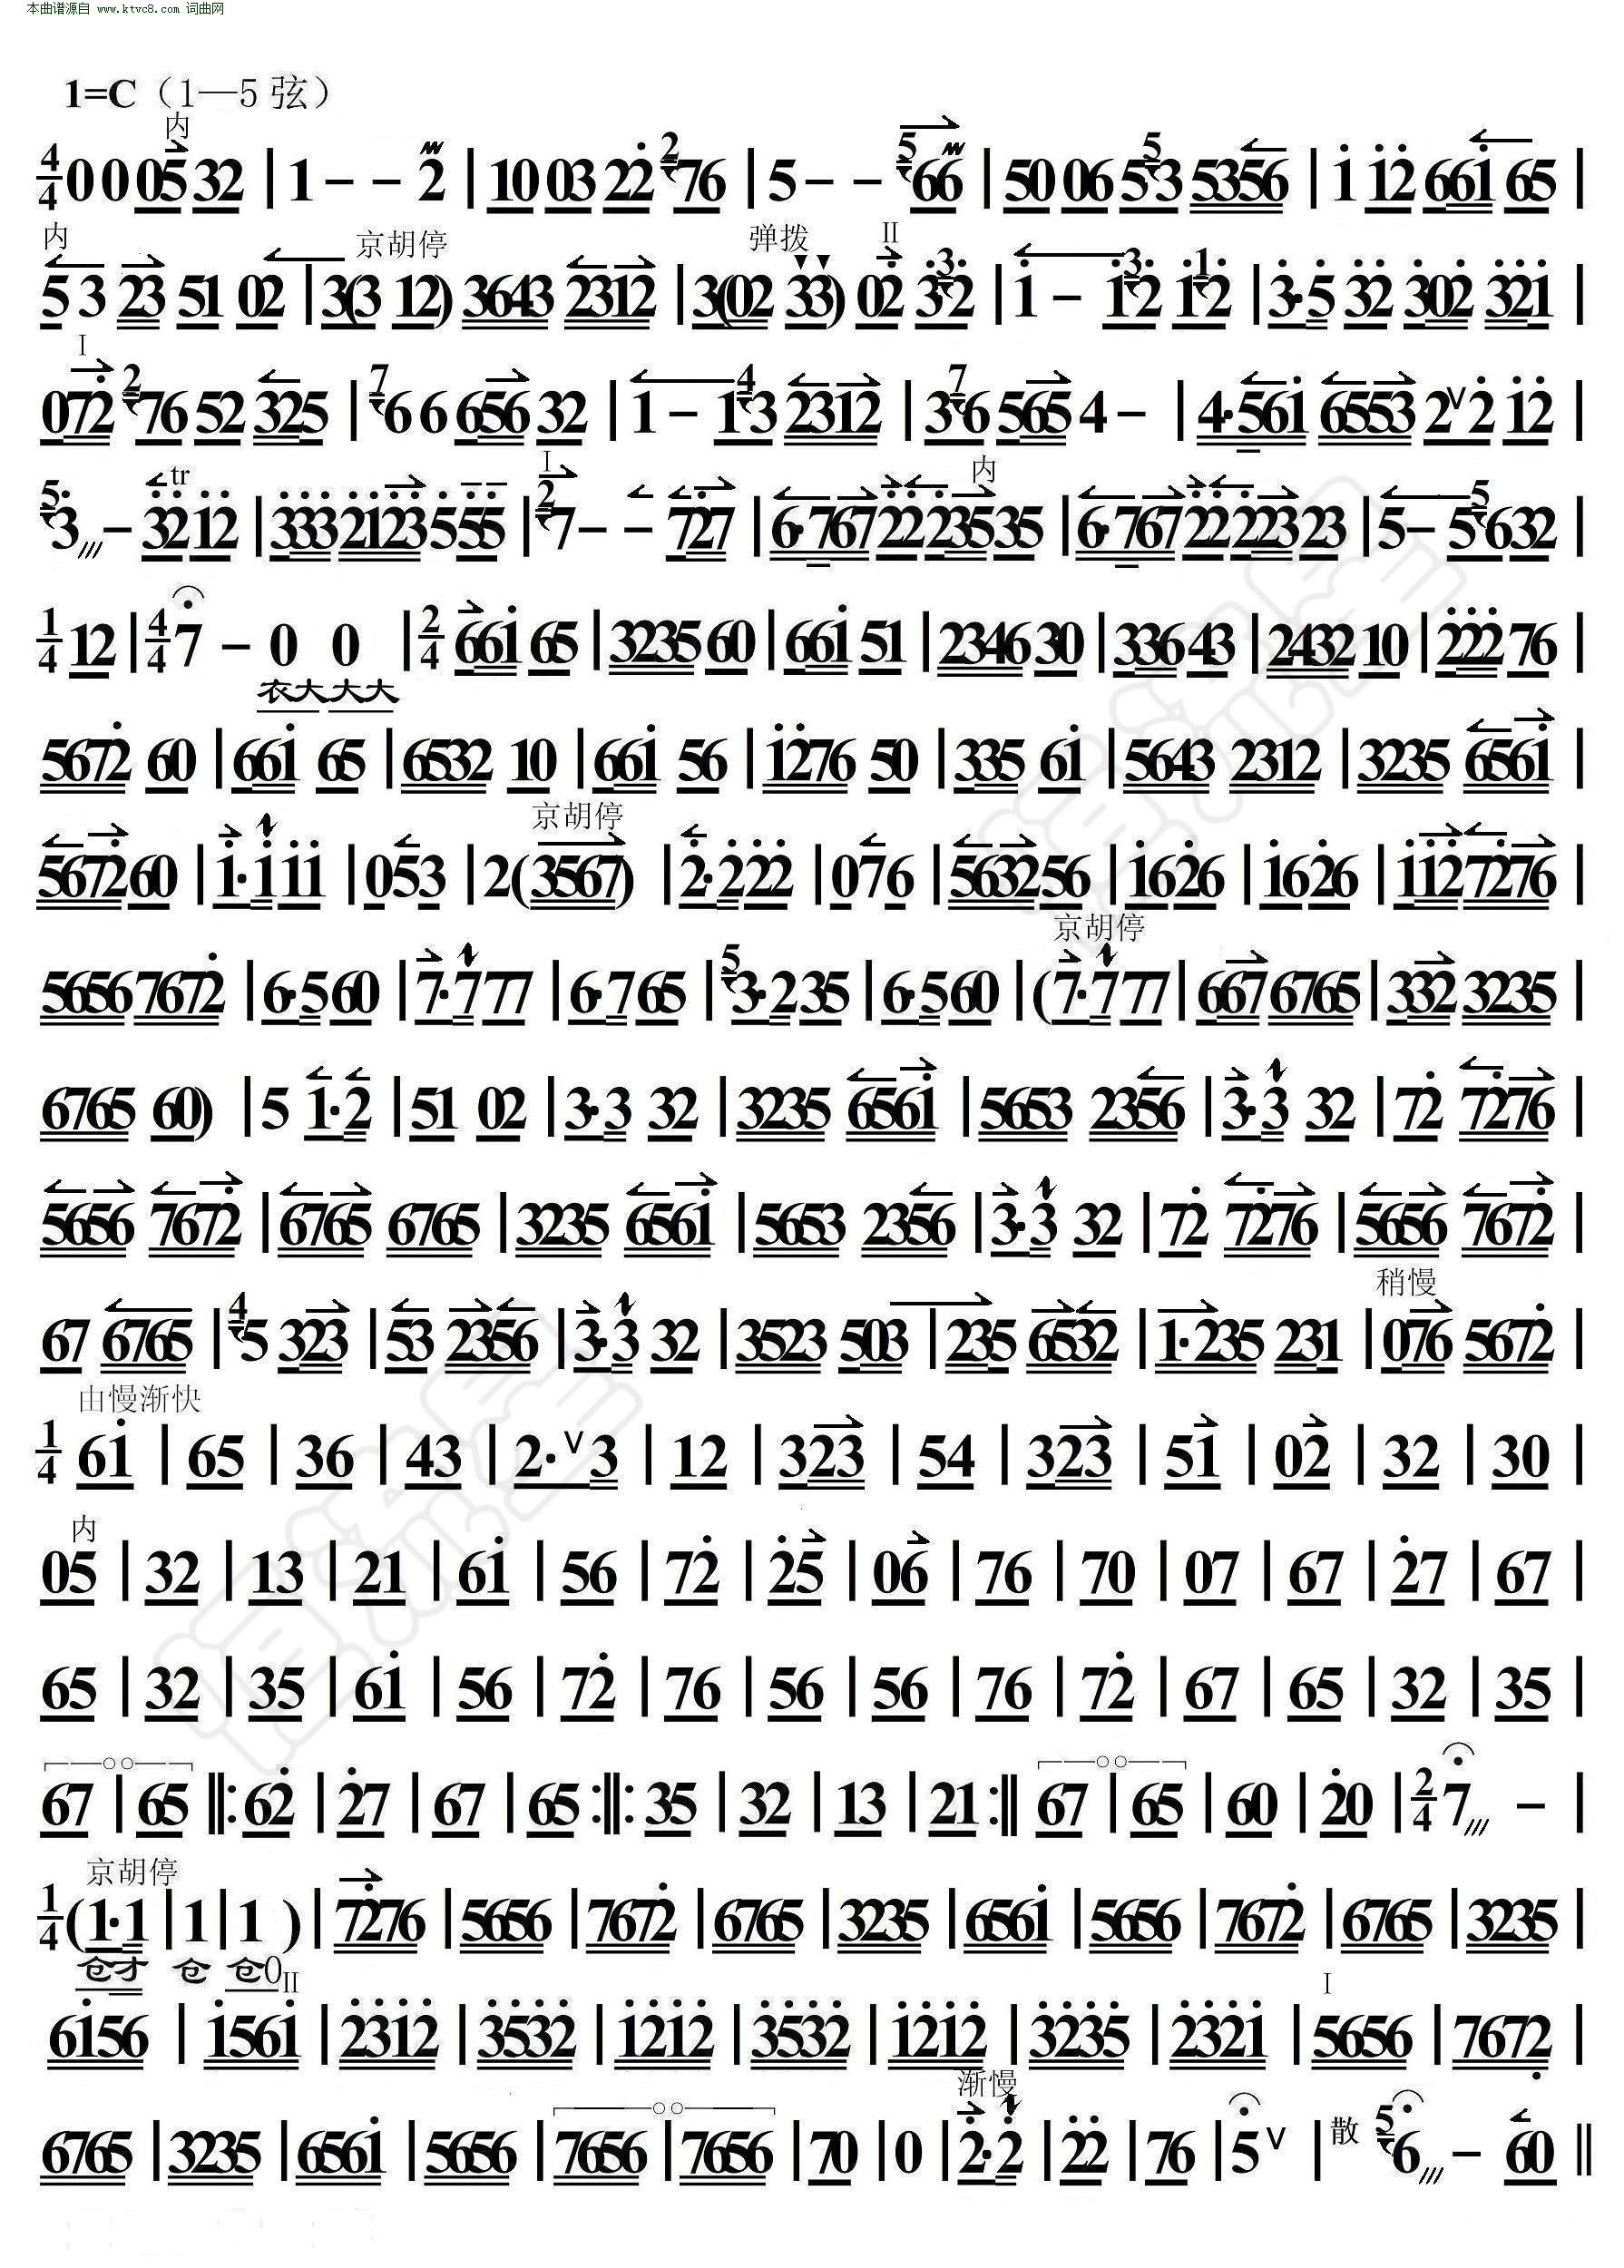 本曲谱源自 www.ktvc8.com 词曲网
1=C（1—5 弦）
内
4/4 0 0 05 32 | 1 - - 2 | 10 03 22̇ 2 76 | 5 - - 5 66 | 50 06 5 5 3 5356 | i i2̇ 66i 65 |
内 京胡停 弹拨 II
5 3 23 51 02 | 3(3 12) 3643 2312 | 3(02 33) 02̇ 3̇ 3̇ 2̇ | i - i 3̇ 2̇ i i 2̇ | 3̇·5̇ 3̇2̇ 3̇02̇ 3̇2̇i |
I
072̇ 2 76 52 325 | 7 6 6 656 32 | 1 - 1 4 3 2312 | 3 7 6 565 4 - | 4·56i 6553 2 V 2̇ i2̇ |
tr I 内
5 3̇ - 3̇2̇ i2̇ | 3̇3̇3̇ 2̇i2̇3̇ 5̇5̇5̇5̇ | 2 7 - - 72̇7 | 6·767 2̇2̇ 2̇35 35 | 6·767 2̇2̇ 2̇223 23 | 5 - 5 5 6 32 |
1/4 12 | 4/4 7 - 0 0 | 2/4 66i 65 | 3235 60 | 66i 51 | 2346 30 | 336 43 | 2432 10 | 2̇2̇2̇ 76 |
衣大大大
5672̇ 60 | 66i 65 | 6532 10 | 66i 56 | i2̇76 50 | 335 6i | 5643 2312 | 3235 656i |
京胡停
5672̇ 60 | i·i ii | 053 | 2(3567) | 2̇·2̇ 2̇2̇ | 076 | 5632 56 | i6 2̇6 | i6 2̇6 | ii2̇ 72̇76 |
京胡停
5656 7672̇ | 6·5 60 | 7·7 77 | 6·7 65 | 5 3·2 35 | 6·5 60 | (7·7 77 | 667 6765 | 332 3235 |
6765 60) | 5 1·2 | 51 02 | 3·3 32 | 3235 656i | 5653 2356 | 3·3 32 | 72̇ 72̇76 |
5656 7672̇ | 6765 6765 | 3235 656i | 5653 2356 | 3·3 32 | 72̇ 72̇76 | 5656 7672̇ |
稍慢
67 6765 | 4 5 323 | 53 2356 | 3·3 32 | 3523 503 | 235 6532 | 1·235 231 | 076 5672̇ |
由慢渐快
1/4 6i | 65 | 36 | 43 | 2· V 3 | 12 | 323 | 54 | 323 | 51 | 02 | 32 | 30 |
内
05 | 32 | 13 | 21 | 6i | 56 | 72̇ | 2̇5 | 06 | 76 | 70 | 07 | 67 | 2̇7 | 67 |
65 | 32 | 35 | 6i | 56 | 72̇ | 76 | 56 | 56 | 76 | 72̇ | 67 | 65 | 32 | 35 |
67 | 65 ‖: 62̇ | 2̇7 | 67 | 65 :‖: 35 | 32 | 13 | 21 :‖ 67 | 65 | 60 | 2̇0 | 2/4 7 - |
京胡停
1/4 (1·1 | 1 | 1 ) | 72̇76 | 5656 | 7672̇ | 6765 | 3235 | 656i | 5656 | 7672̇ | 6765 | 3235 |
仓才 仓 仓0
II I
6i56 | i56i | 2̇3̇i2̇ | 3̇5̇3̇2̇ | i2̇i2̇ | 3̇5̇3̇2̇ | i2̇i2̇ | 3̇2̇3̇5̇ | 2̇3̇2̇i | 5656 | 7672̣ |
渐慢
6765 | 3235 | 656i | 5656 | 7656 | 7656 | 70 | 0 | 2̇·2̇ | 2̇2̇ | 76 | 5 V | 散 5 6 - 60 ‖